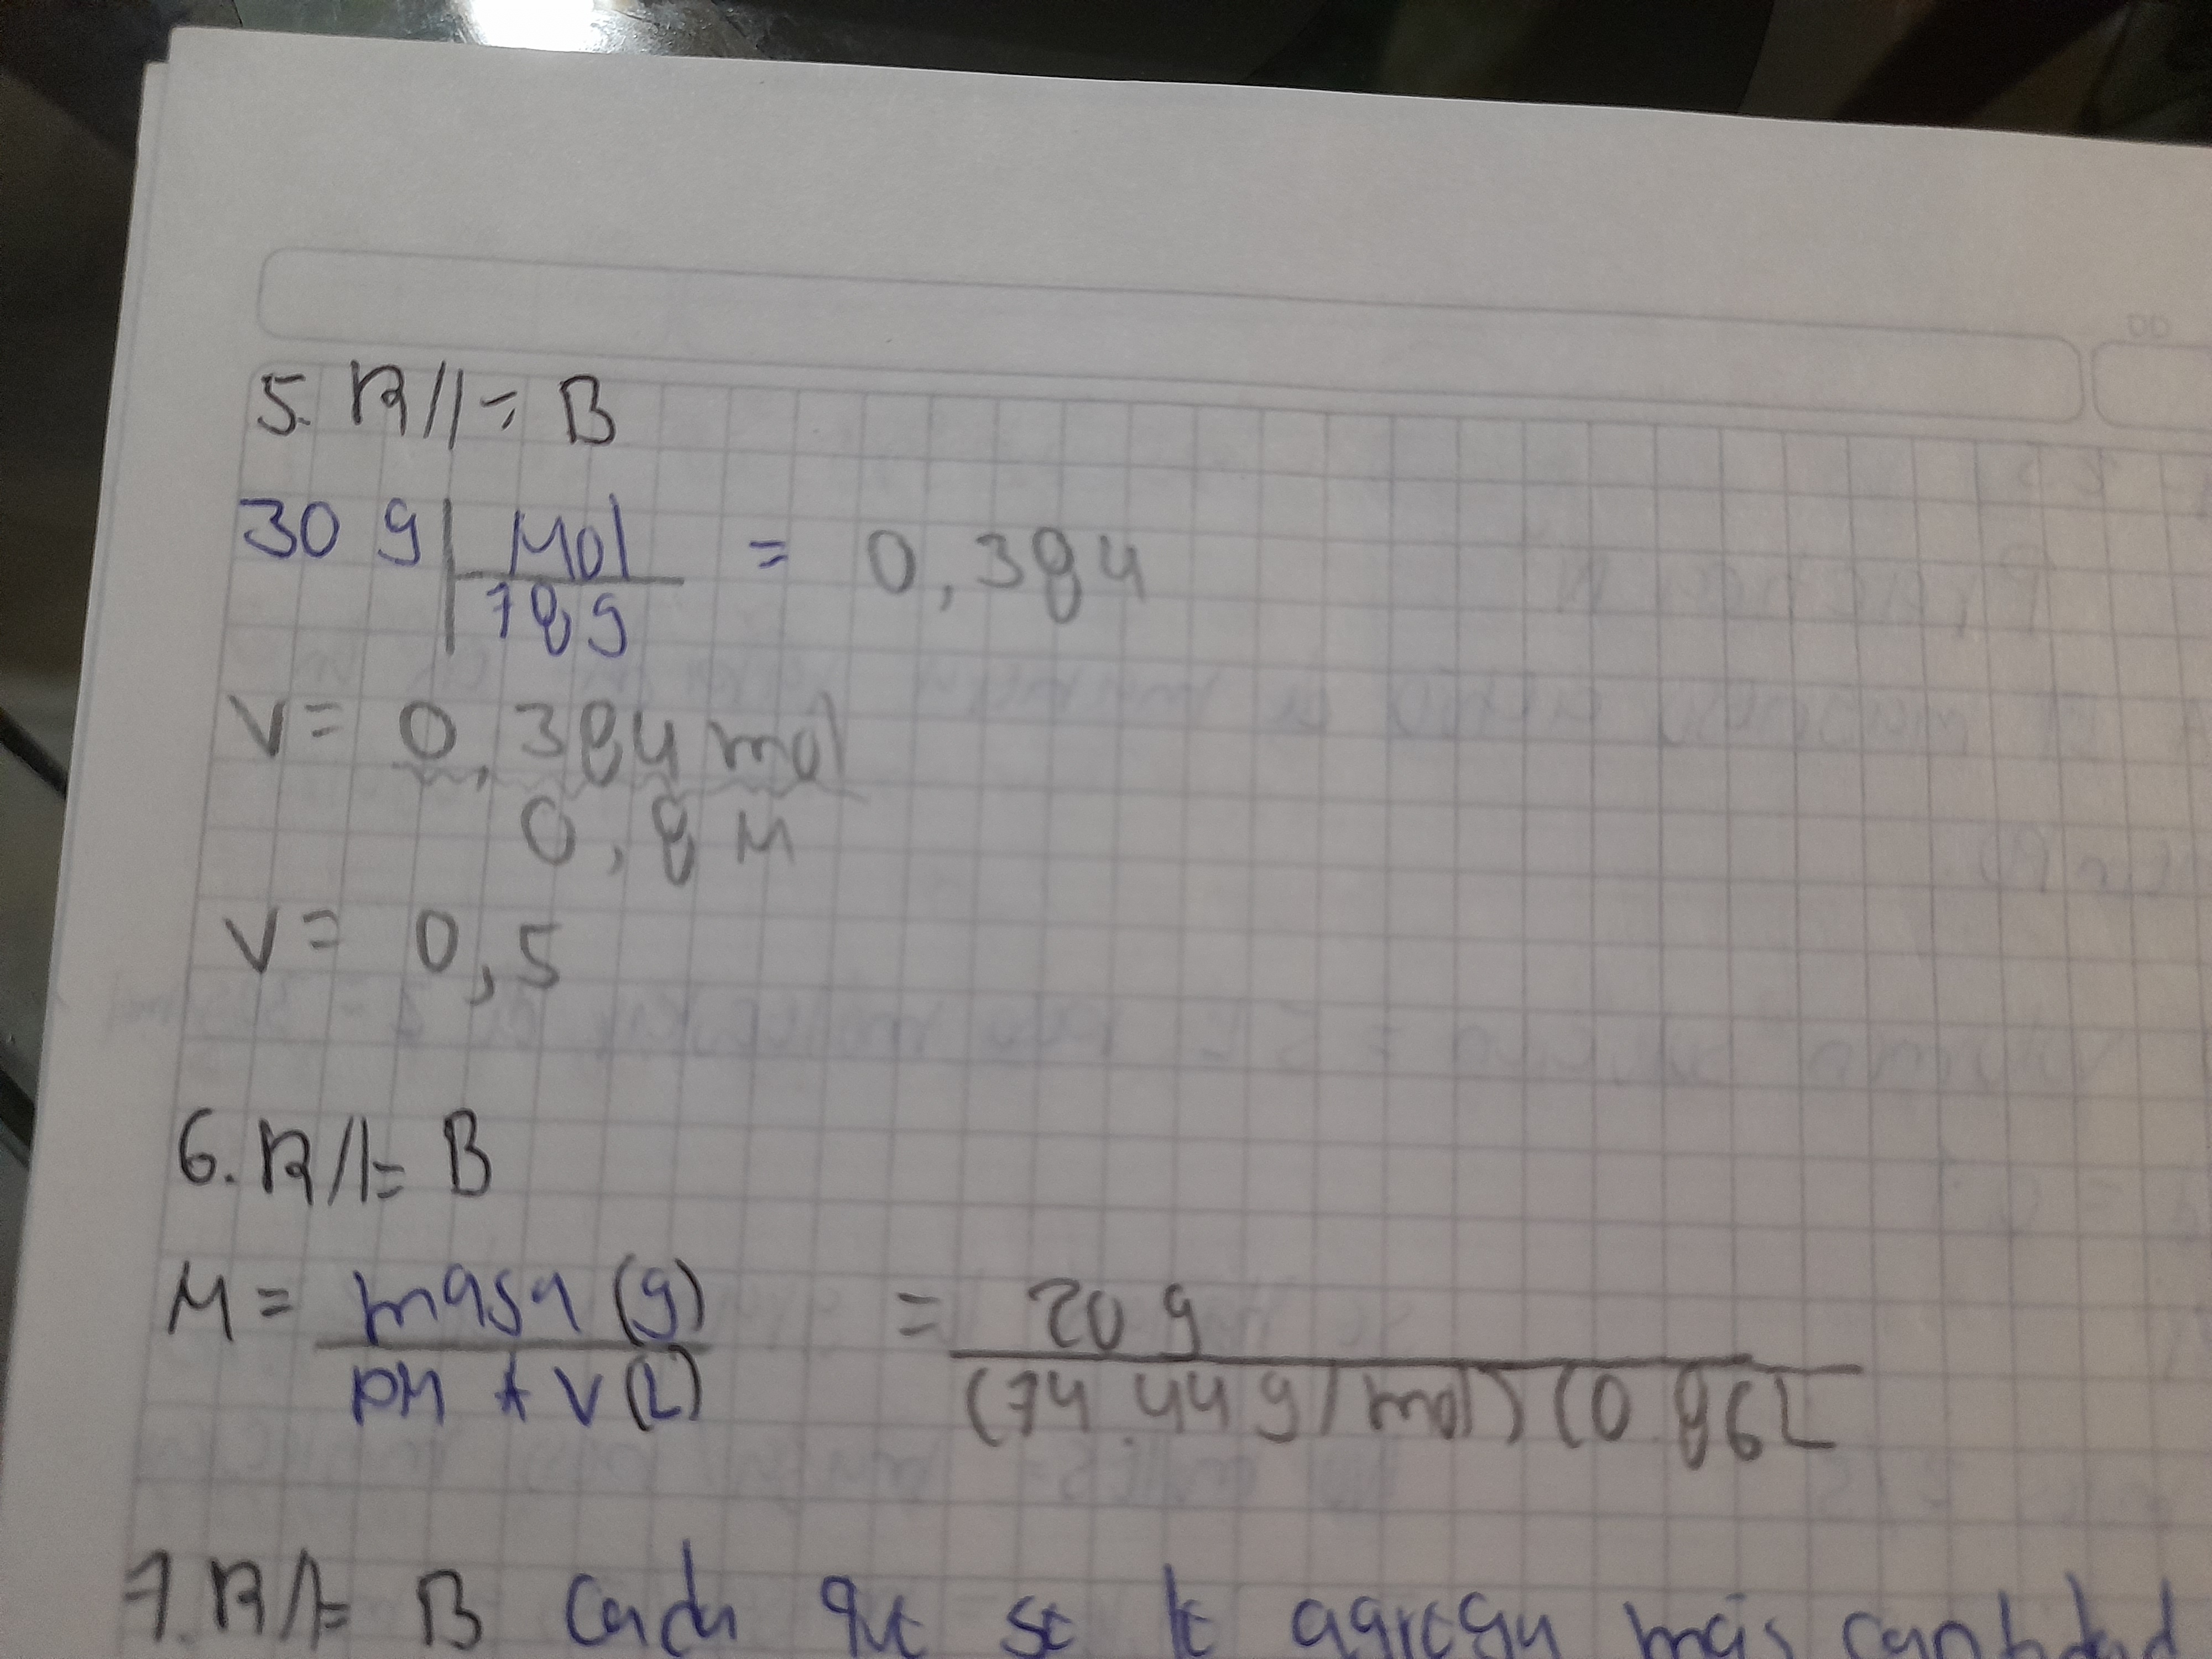 5. R//= B
30 g | Mol = 0,384
78 g
V= 0,384 mol
0,8 M
V= 0,5
6. R//= B
M = masa (g) = 20 g
PM * V(L) (74.44 g/mol) (0.86L
7. R//= B Cada que se le agregan más cantidad